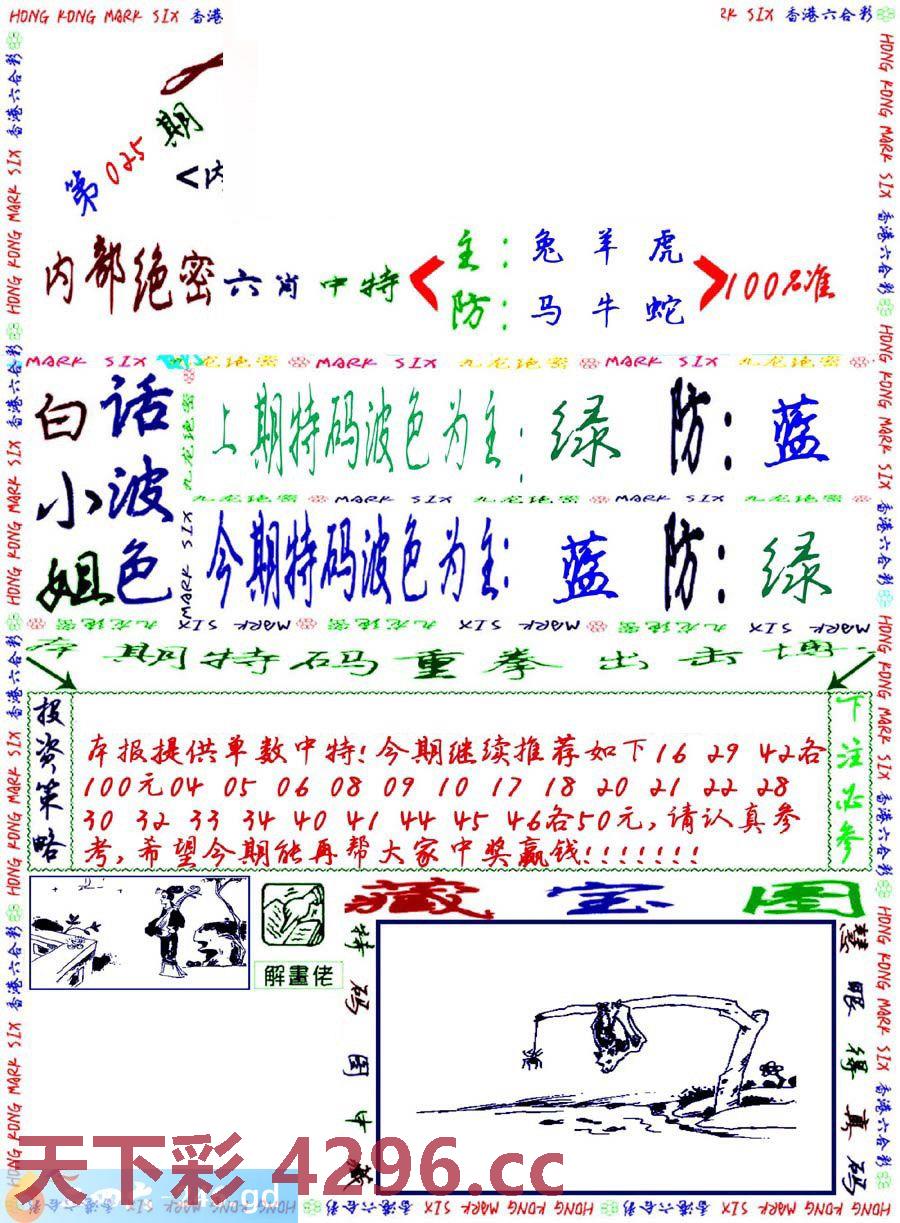 HONG KONG MARK SIX 香港
RK SIX 香港六合彩
第025期
<内
内部绝密六肖中特
主：兔羊虎
防：马牛蛇
100%准
MARK SIX 九龙绝密 MARK SIX 九龙绝密 MARK SIX 九龙绝密
白话
小波
姐色
上期特码波色为主：绿 防：蓝
九龙绝密 MARK SIX 九龙绝密 MARK SIX 九龙绝密
今期特码波色为主：蓝 防：绿
本期特码重拳出击博
投资策略
本报提供单数中特!今期继续推荐如下16 29 42各
100元04 05 06 08 09 10 17 18 20 21 22 28
30 32 33 34 40 41 44 45 46各50元,请认真参
考,希望今期能再帮大家中奖赢钱!!!!!!!
下注必参
解畫佬
藏宝图
特码图中藏
慧眼得真码
天下彩 4296.cc
gd